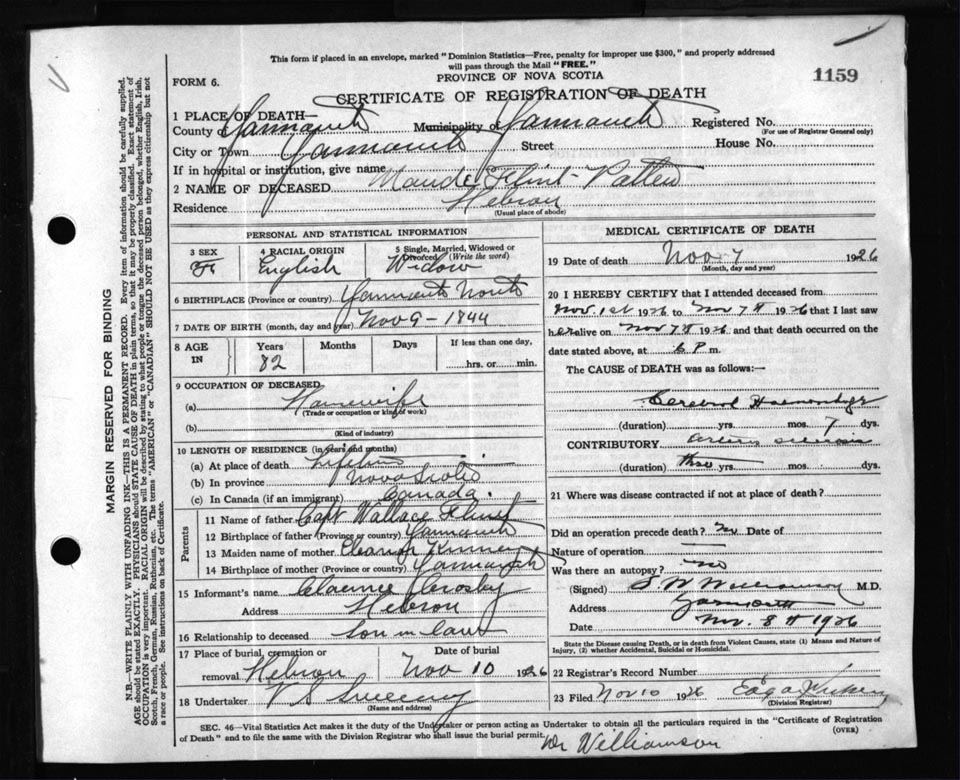 This form if placed in an envelope, marked "Dominion Statistics—Free, penalty for improper use $300," and properly addressed
will pass through the Mail "FREE."
PROVINCE OF NOVA SCOTIA
1159
FORM 6.
CERTIFICATE OF REGISTRATION OF DEATH
1 PLACE OF DEATH—
County of Yarmouth Municipality of Yarmouth Registered No.
(For use of Registrar General only)
City or Town Yarmouth Street House No.
If in hospital or institution, give name
2 NAME OF DECEASED Maude Flint Patten
Residence Hebron
(Usual place of abode)
PERSONAL AND STATISTICAL INFORMATION
3 SEX 4 RACIAL ORIGIN 5 Single, Married, Widowed or Divorced (Write the word)
F English Widow
6 BIRTHPLACE (Province or country) Yarmouth North
7 DATE OF BIRTH (month, day and year) Nov 9 - 1844
8 AGE IN Years Months Days If less than one day,
82 hrs. or min.
9 OCCUPATION OF DECEASED
(a) Housewife
(Trade or occupation or kind of work)
(b)
(Kind of industry)
10 LENGTH OF RESIDENCE (in years and months)
(a) At place of death Lifetime
(b) In province Nova Scotia
(c) In Canada (if an immigrant) Canada.
Parents
11 Name of father Capt Wallace Flint
12 Birthplace of father (Province or country) Yarmouth
13 Maiden name of mother Eleanor Kinney
14 Birthplace of mother (Province or country) Yarmouth
15 Informant's name Clarence Crosby
Address Hebron
16 Relationship to deceased Son in law
17 Place of burial, cremation or removal Date of burial
Hebron Nov 10 1926
18 Undertaker V S Sweeny
(Name and address)
MEDICAL CERTIFICATE OF DEATH
19 Date of death Nov 7 1926
(Month, day and year)
20 I HEREBY CERTIFY that I attended deceased from
Nov 1st 1926 to Nov 7th 1926 that I last saw
her alive on Nov 7th 1926 and that death occurred on
date stated above, at 6 P m.
The CAUSE of DEATH was as follows:—
Cerebral Haemorrhage
(duration) yrs. mos. 7 dys.
CONTRIBUTORY Arterio sclerosis
(duration) yrs. mos. dys.
21 Where was disease contracted if not at place of death?
Did an operation precede death? no Date of
Nature of operation
Was there an autopsy? no
(Signed) S W Williamson M.D.
Address Yarmouth
Date Nov. 8th 1926
State the Disease causing Death, or in death from Violent Causes, state (1) Means and Nature of
Injury, (2) whether Accidental, Suicidal or Homicidal.
22 Registrar's Record Number
23 Filed Nov 10 1926
(Division Registrar)
SEC. 46—Vital Statistics Act makes it the duty of the Undertaker or person acting as Undertaker to obtain all the particulars required in the "Certificate of Registration
of Death" and to file the same with the Division Registrar who shall issue the burial permit.
(OVER)
Dr Williamson
MARGIN RESERVED FOR BINDING
N.B.—WRITE PLAINLY WITH UNFADING INK—THIS IS A PERMANENT RECORD. Every item of information should be carefully supplied.
AGE should be stated EXACTLY. PHYSICIANS should STATE CAUSE OF DEATH in plain terms, so that it may be properly classified. Exact statement of
OCCUPATION is very important. RACIAL ORIGIN will be described by stating to what people or tongue the deceased person belonged, whether English, Irish,
Scotch, French, German, Russian, Ruthenian, etc. The terms "AMERICAN" or "CANADIAN" SHOULD NOT BE USED as they express citizenship but not
a race or people. See instructions on back of Certificate.